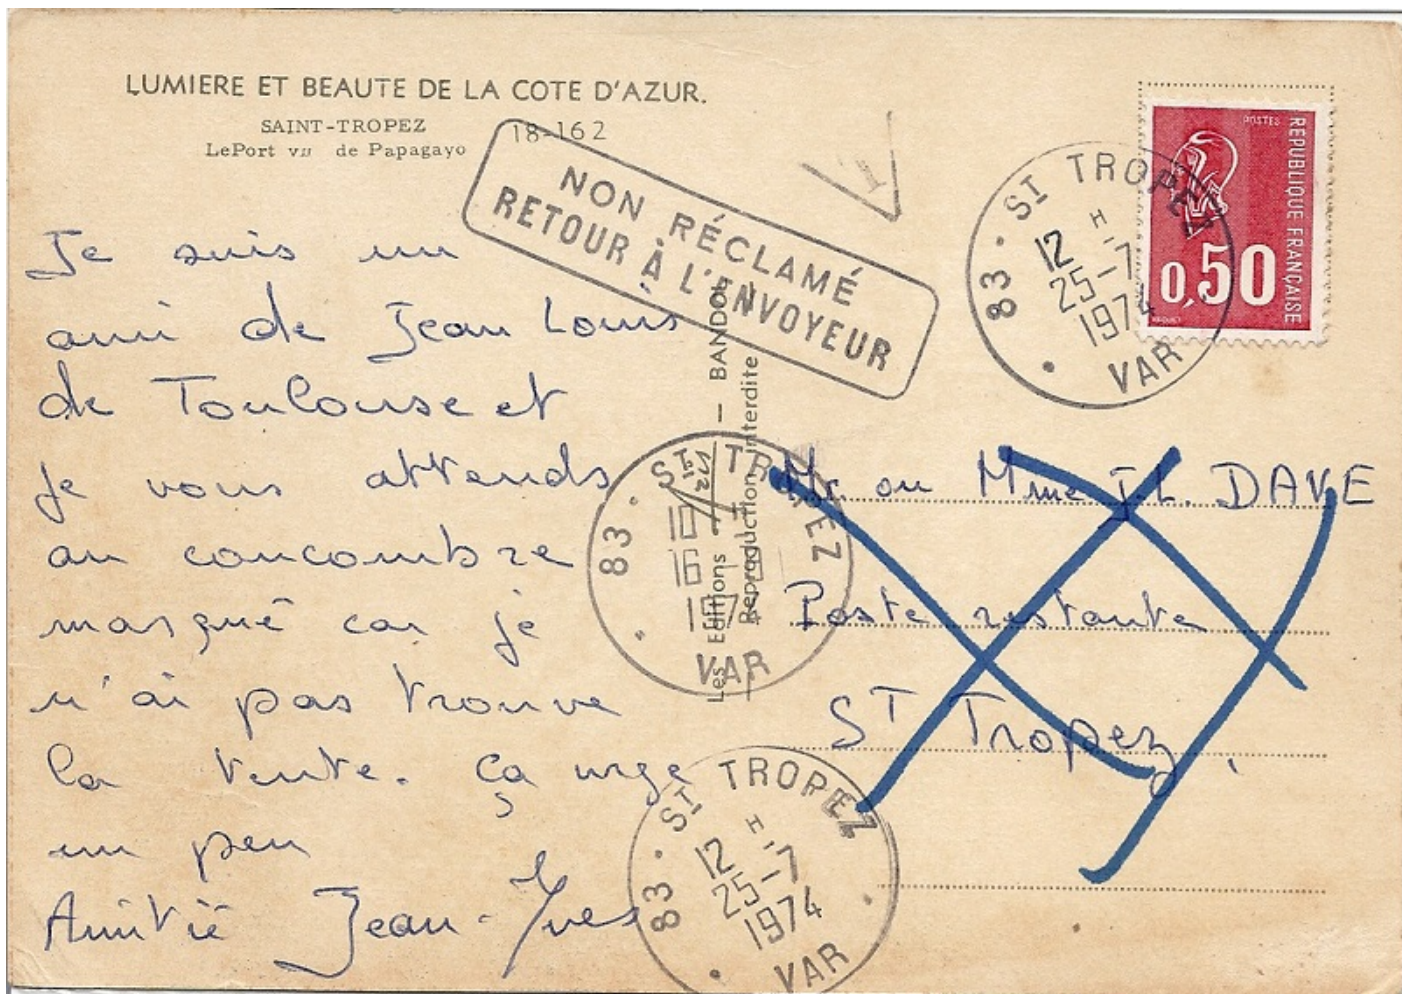 LUMIERE ET BEAUTE DE LA COTE D'AZUR.
SAINT-TROPEZ
18-162
LePort vu de Papagayo
NON RÉCLAMÉ
RETOUR À L'ENVOYEUR
POSTES
REPUBLIQUE FRANÇAISE
0,50
83 · ST TROPEZ
12 H
25-7
1974
VAR
Je suis un
ami de Jean Louis
de Toulouse et
je vous attends
au concombre
masqué car je
n'ai pas trouve
la tente. ça urge
un peu
Amitié Jean-Yves
Les Editions — BANDOL
Reproduction interdite
83 · ST TROPEZ
10
16
VAR
Mr ou Mme J.L. DAVE
Poste restante
ST Tropez
83 · ST TROPEZ
12 H
25-7
1974
VAR